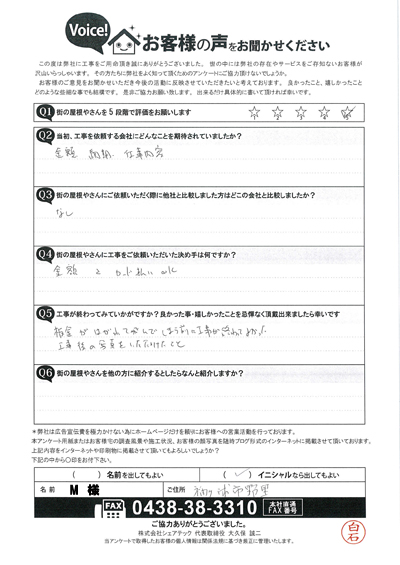 Voice!
お客様の声をお聞かせください
この度は弊社に工事をご用命頂き誠にありがとうございました。世の中には弊社の存在やサービスをご存知ないお客様が
沢山いらっしゃいます。その方たちに弊社をよく知って頂くためのアンケートにご協力頂けないでしょうか。
お客様のご意見をお聞かせいただき今後の活動に反映させていただきたいと考えております。良かったこと、嬉しかったこと
どのような些細な事でも結構です。是非ご協力お願い致します。出来るだけ具体的に書いて頂ければ幸いです。
Q1 街の屋根やさんを5段階で評価をお願いします ☆ ☆ ☆ ☆ ☆
Q2 当初、工事を依頼する会社にどんなことを期待されていましたか?
金額 納期 仕事内容
Q3 街の屋根やさんにご依頼いただく際に他社と比較しました方はどこの会社と比較しましたか?
なし
Q4 街の屋根やさんに工事をご依頼いただいた決め手は何ですか?
金額 と カード払い OK
Q5 工事が終わってみていかがですか?良かった事・嬉しかったことを忌憚なく頂戴出来ましたら幸いです
板金が はがれて
工事後の写真をいただけたこと
Q6 街の屋根やさんを他の方に紹介するとしたらなんと紹介しますか?
*弊社は広告宣伝費を極力かけない為にホームページだけを頼りにお客様への営業活動を行っております。
本アンケート用紙またはお客様での調査風景や施工状況、お客様の顔写真を随時ブログ形式のインターネットに掲載させて頂いております。
上記内容をインターネットや印刷物に掲載させて頂いてもよろしいでしょうか?
下記の中から○印をお付下さい。
( ) 名前を出してもよい ( ✓ ) イニシャルなら出してもよい
名前 M 様 ご住所
FAX 0438-38-3310 本社直通 FAX番号
ご協力ありがとうございました。
株式会社シェアテック 代表取締役 大久保 誠二
当アンケートで取得したお客様の個人情報は関係法規に基づき厳正に管理いたします。
白石